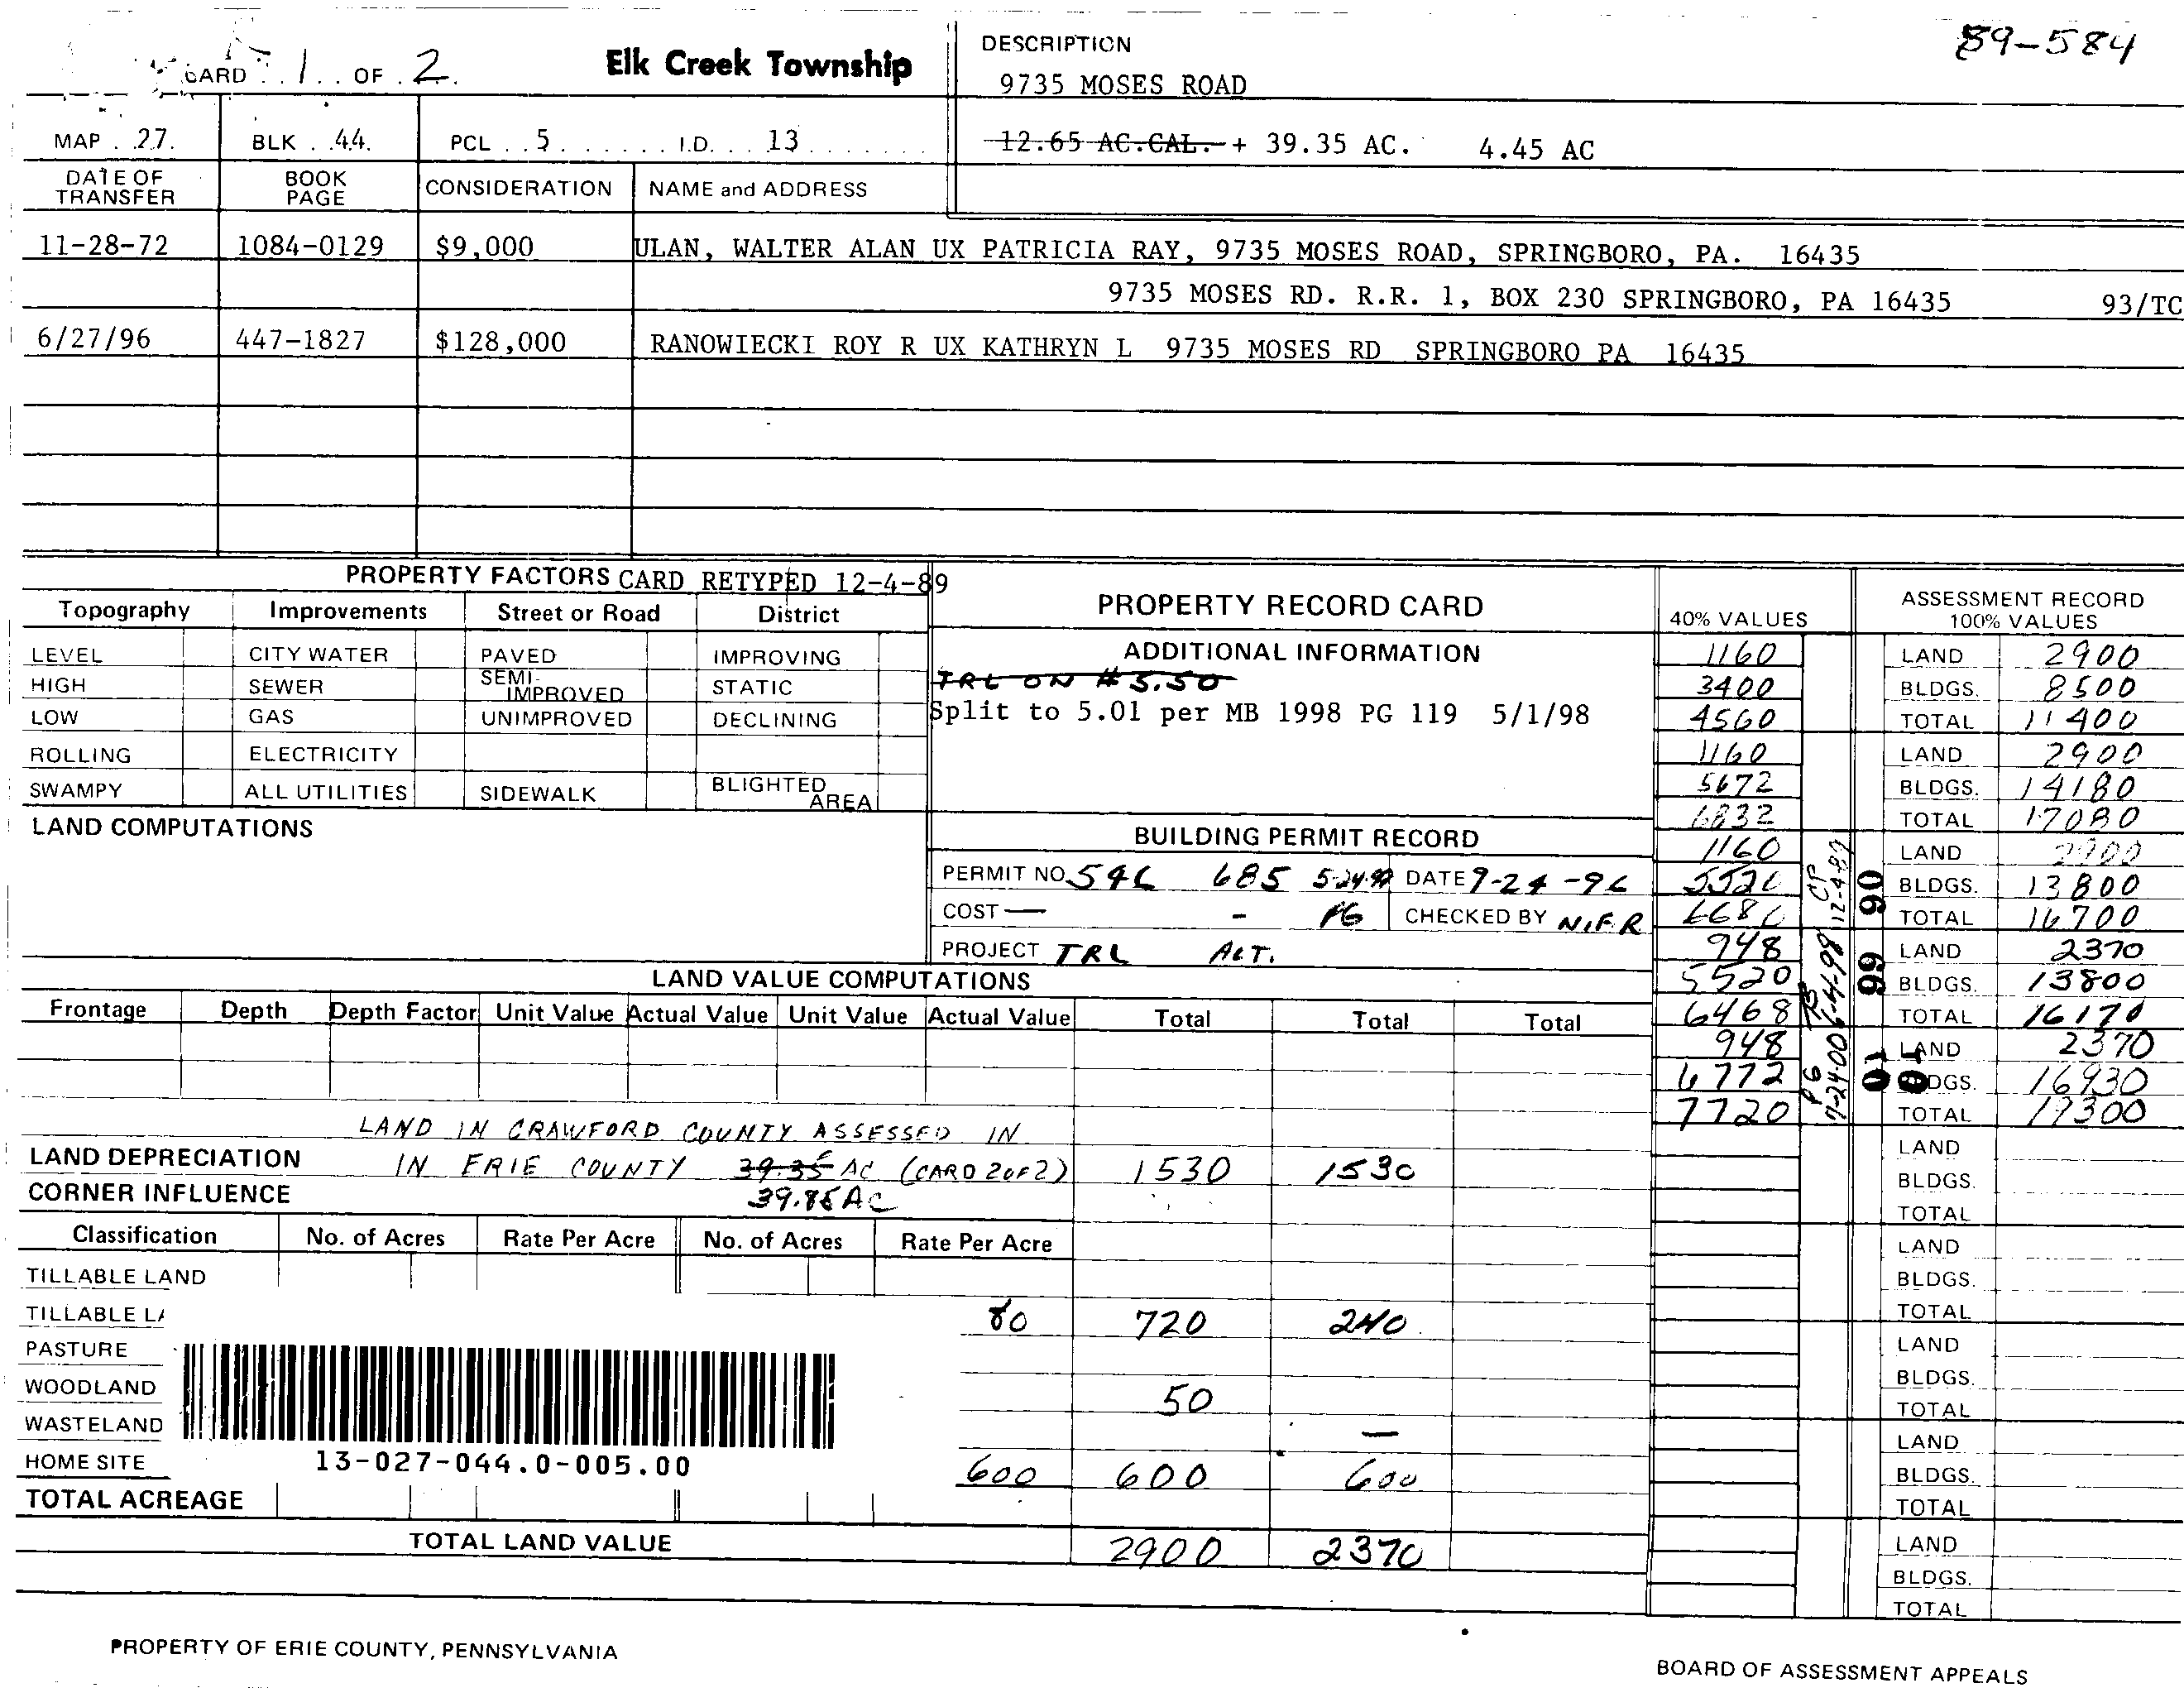 CARD 1 OF 2
Elk Creek Township
DESCRIPTION
89-584
9735 MOSES ROAD
MAP 27. BLK 44. PCL 5 I.D. 13
12.65 AC.CAL. + 39.35 AC. 4.45 AC
DATE OF TRANSFER BOOK PAGE CONSIDERATION NAME and ADDRESS
11-28-72 1084-0129 $9,000 ULAN, WALTER ALAN UX PATRICIA RAY, 9735 MOSES ROAD, SPRINGBORO, PA. 16435
9735 MOSES RD. R.R. 1, BOX 230 SPRINGBORO, PA 16435 93/TC
6/27/96 447-1827 $128,000 RANOWIECKI ROY R UX KATHRYN L 9735 MOSES RD SPRINGBORO PA 16435
PROPERTY FACTORS CARD RETYPED 12-4-89
Topography Improvements Street or Road District
LEVEL CITY WATER PAVED IMPROVING
HIGH SEWER SEMI-IMPROVED STATIC
LOW GAS UNIMPROVED DECLINING
ROLLING ELECTRICITY
SWAMPY ALL UTILITIES SIDEWALK BLIGHTED AREA
LAND COMPUTATIONS
PROPERTY RECORD CARD
ADDITIONAL INFORMATION
TRL ON #5.50
Split to 5.01 per MB 1998 PG 119 5/1/98
BUILDING PERMIT RECORD
PERMIT NO. 546 685 DATE 9-24-96
COST — - PG CHECKED BY N.F.R
PROJECT TRL ALT.
40% VALUES ASSESSMENT RECORD 100% VALUES
1160 LAND 2900
3400 BLDGS. 8500
4560 TOTAL 11400
1160 LAND 2900
5672 BLDGS. 14180
6832 TOTAL 17080
1160 LAND 2900
5520 BLDGS. 13800
6680 TOTAL 16700
948 LAND 2370
5520 BLDGS. 13800
6468 TOTAL 16170
948 LAND 2370
6772 BLDGS. 16930
7720 TOTAL 19300
CP 12-4-89
6-4-98
PG
90
99
01
01
LAND
BLDGS.
TOTAL
LAND
BLDGS.
TOTAL
LAND
BLDGS.
TOTAL
LAND
BLDGS.
TOTAL
LAND
BLDGS.
TOTAL
LAND VALUE COMPUTATIONS
Frontage Depth Depth Factor Unit Value Actual Value Unit Value Actual Value Total Total Total
LAND IN CRAWFORD COUNTY ASSESSED IN
LAND DEPRECIATION IN ERIE COUNTY 39.35 AC (CARD 2 OF 2) 1530 1530
CORNER INFLUENCE 39.85 AC
Classification No. of Acres Rate Per Acre No. of Acres Rate Per Acre
TILLABLE LAND
TILLABLE LA 80 720 240
PASTURE
WOODLAND 50
WASTELAND —
HOME SITE 600 600 600
13-027-044.0-005.00
TOTAL ACREAGE
TOTAL LAND VALUE 2900 2370
PROPERTY OF ERIE COUNTY, PENNSYLVANIA
BOARD OF ASSESSMENT APPEALS